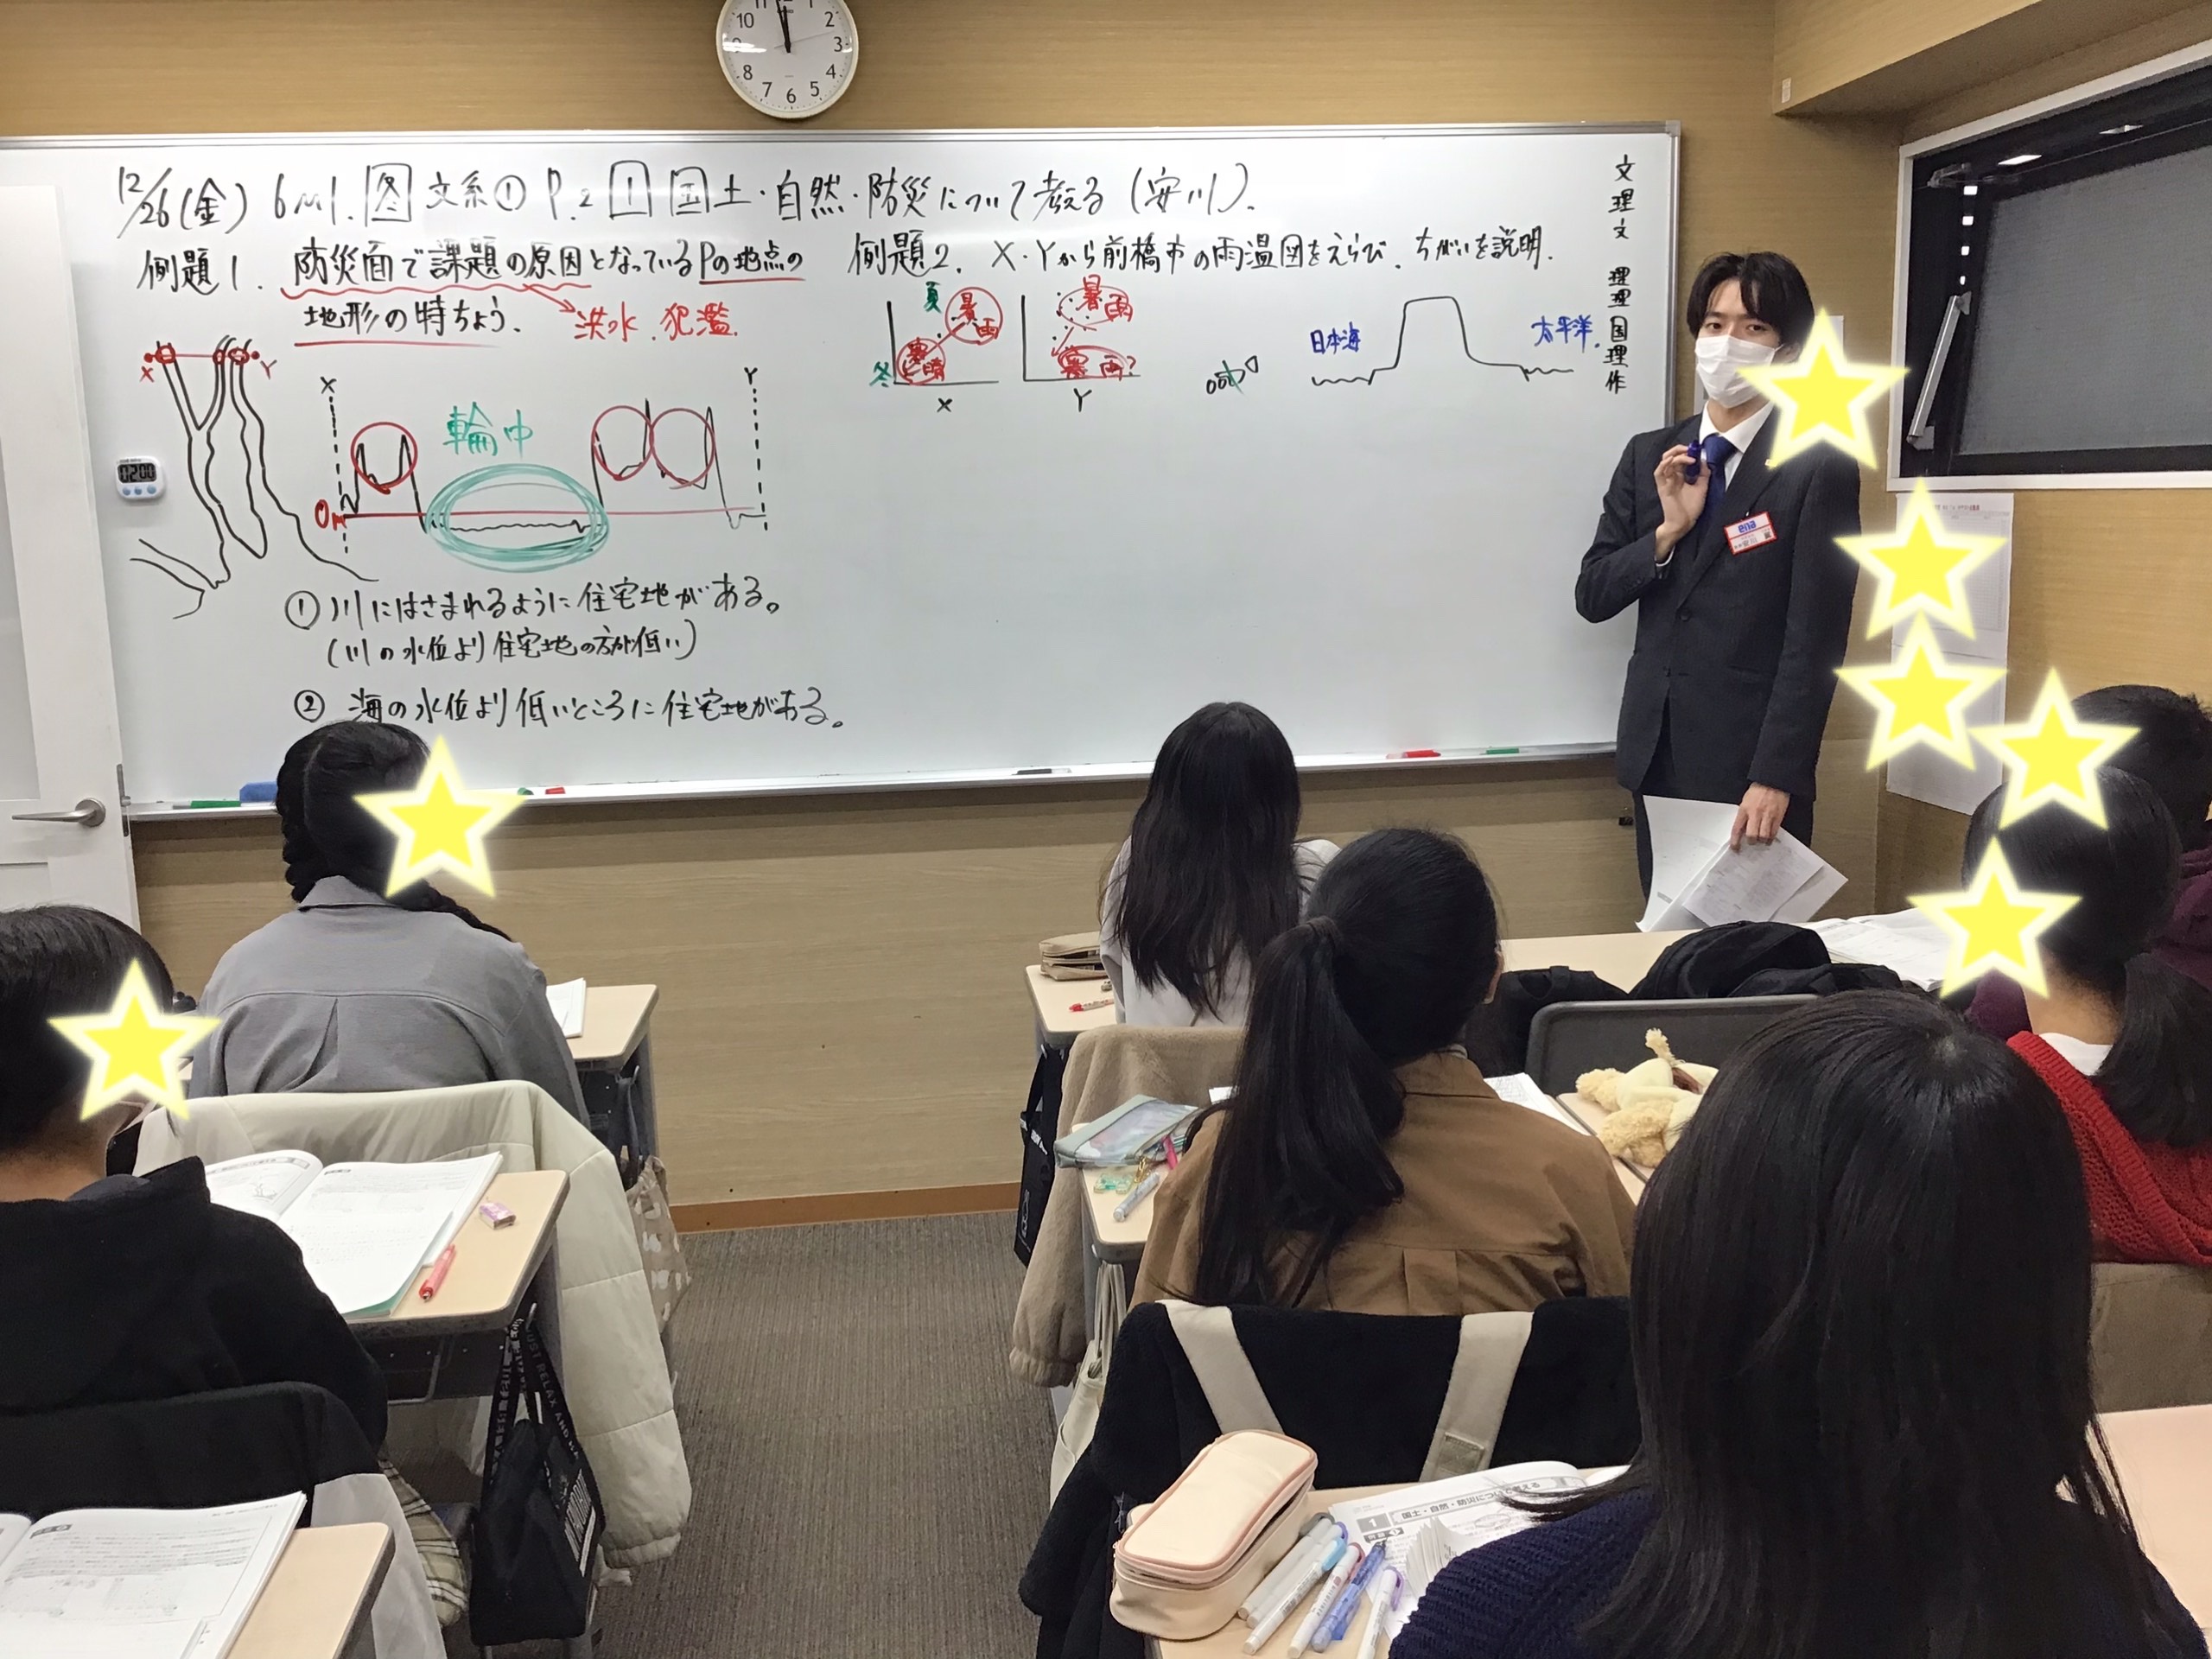 12/26(金) 6m1. 冬 文系① P.2 1 国土・自然・防災について考える (安川).
例題1. 防災面で課題の原因となっているPの地点の
地形の特ちょう.
洪水. 犯濫.
X
Y
X
Y
輪中
0m
①川にはさまれるように住宅地がある。
(川の水位より住宅地の方が低い)
② 海の水位より低いところに住宅地がある。
例題2. X・Yから前橋市の雨温図をえらび、ちがいを説明.
夏
暑
雨
冬
寒
晴
X
暑
雨
寒
雨?
Y
日本海
太平洋.
文理文 理理国理作
10
2
3
4
5
6
7
8
ena
安川
1
国土・自然・防災について考える